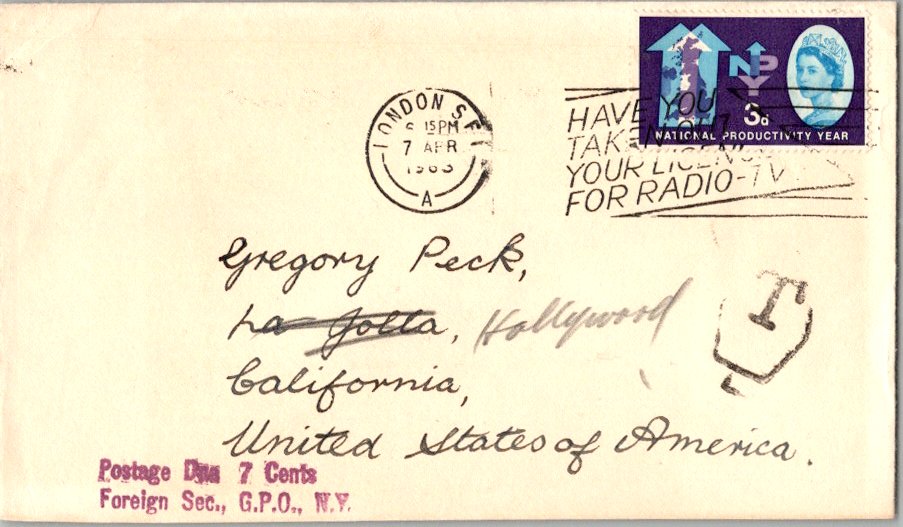 NPY
3d
NATIONAL PRODUCTIVITY YEAR
LONDON S.E.1
6 15PM
7 APR
1963
A
HAVE YOU
TAKEN OUT
YOUR LICENCE
FOR RADIO-TV
Gregory Peck,
La Jolla, Hollywood
California,
United States of America.
T
Postage Due 7 Cents
Foreign Sec., G.P.O., N.Y.